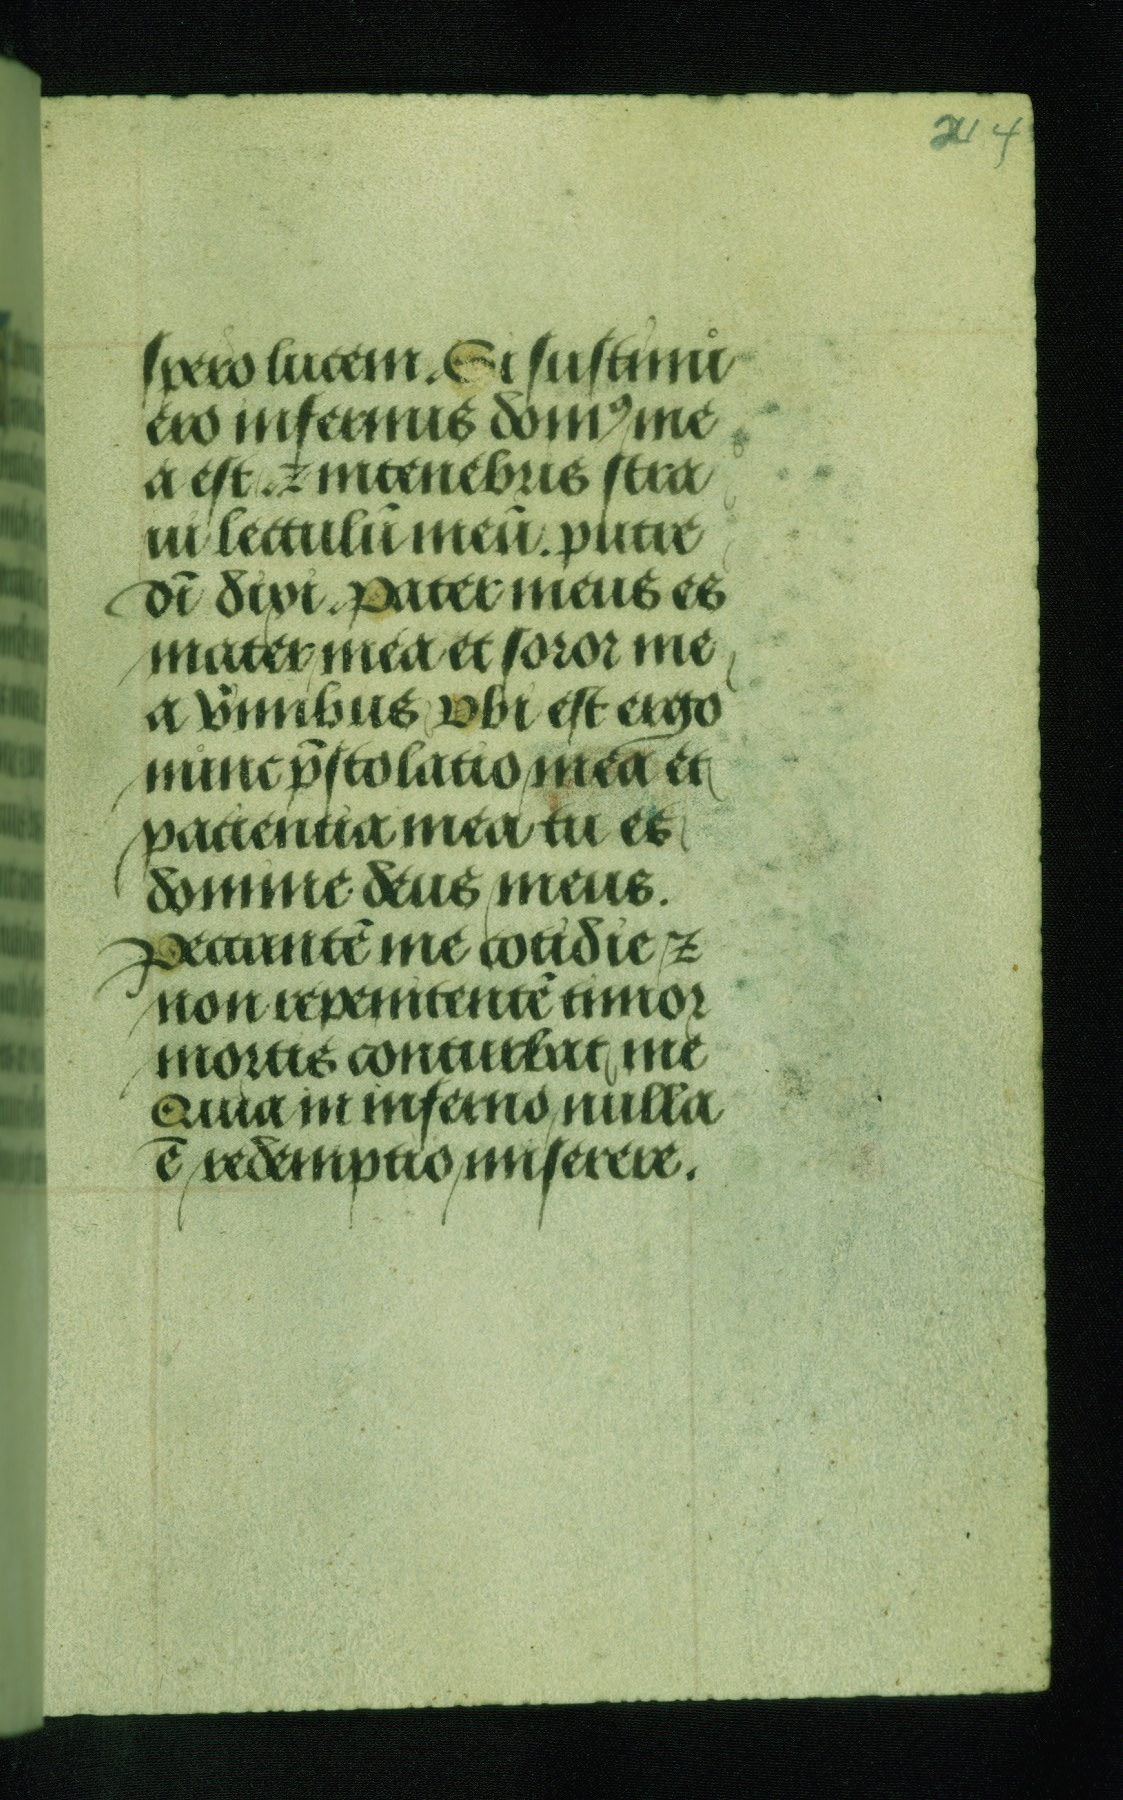 214
spero lucem. Si sustinu
ero infernus domꝰ me
a est. ⁊ in tenebris stra
ui lectulũ meũ. putre
dĩ dixi. Pater meus es
mater mea et soror me
a v̾mibus Vbi est ergo
nunc p̃stolatio mea et
pacientia mea tu es
domine deus meus.
Peccantẽ me cotidie ⁊
non repenitentẽ timor
mortis conturbat me
Quia in inferno nulla
ẽ redemptio miserere.